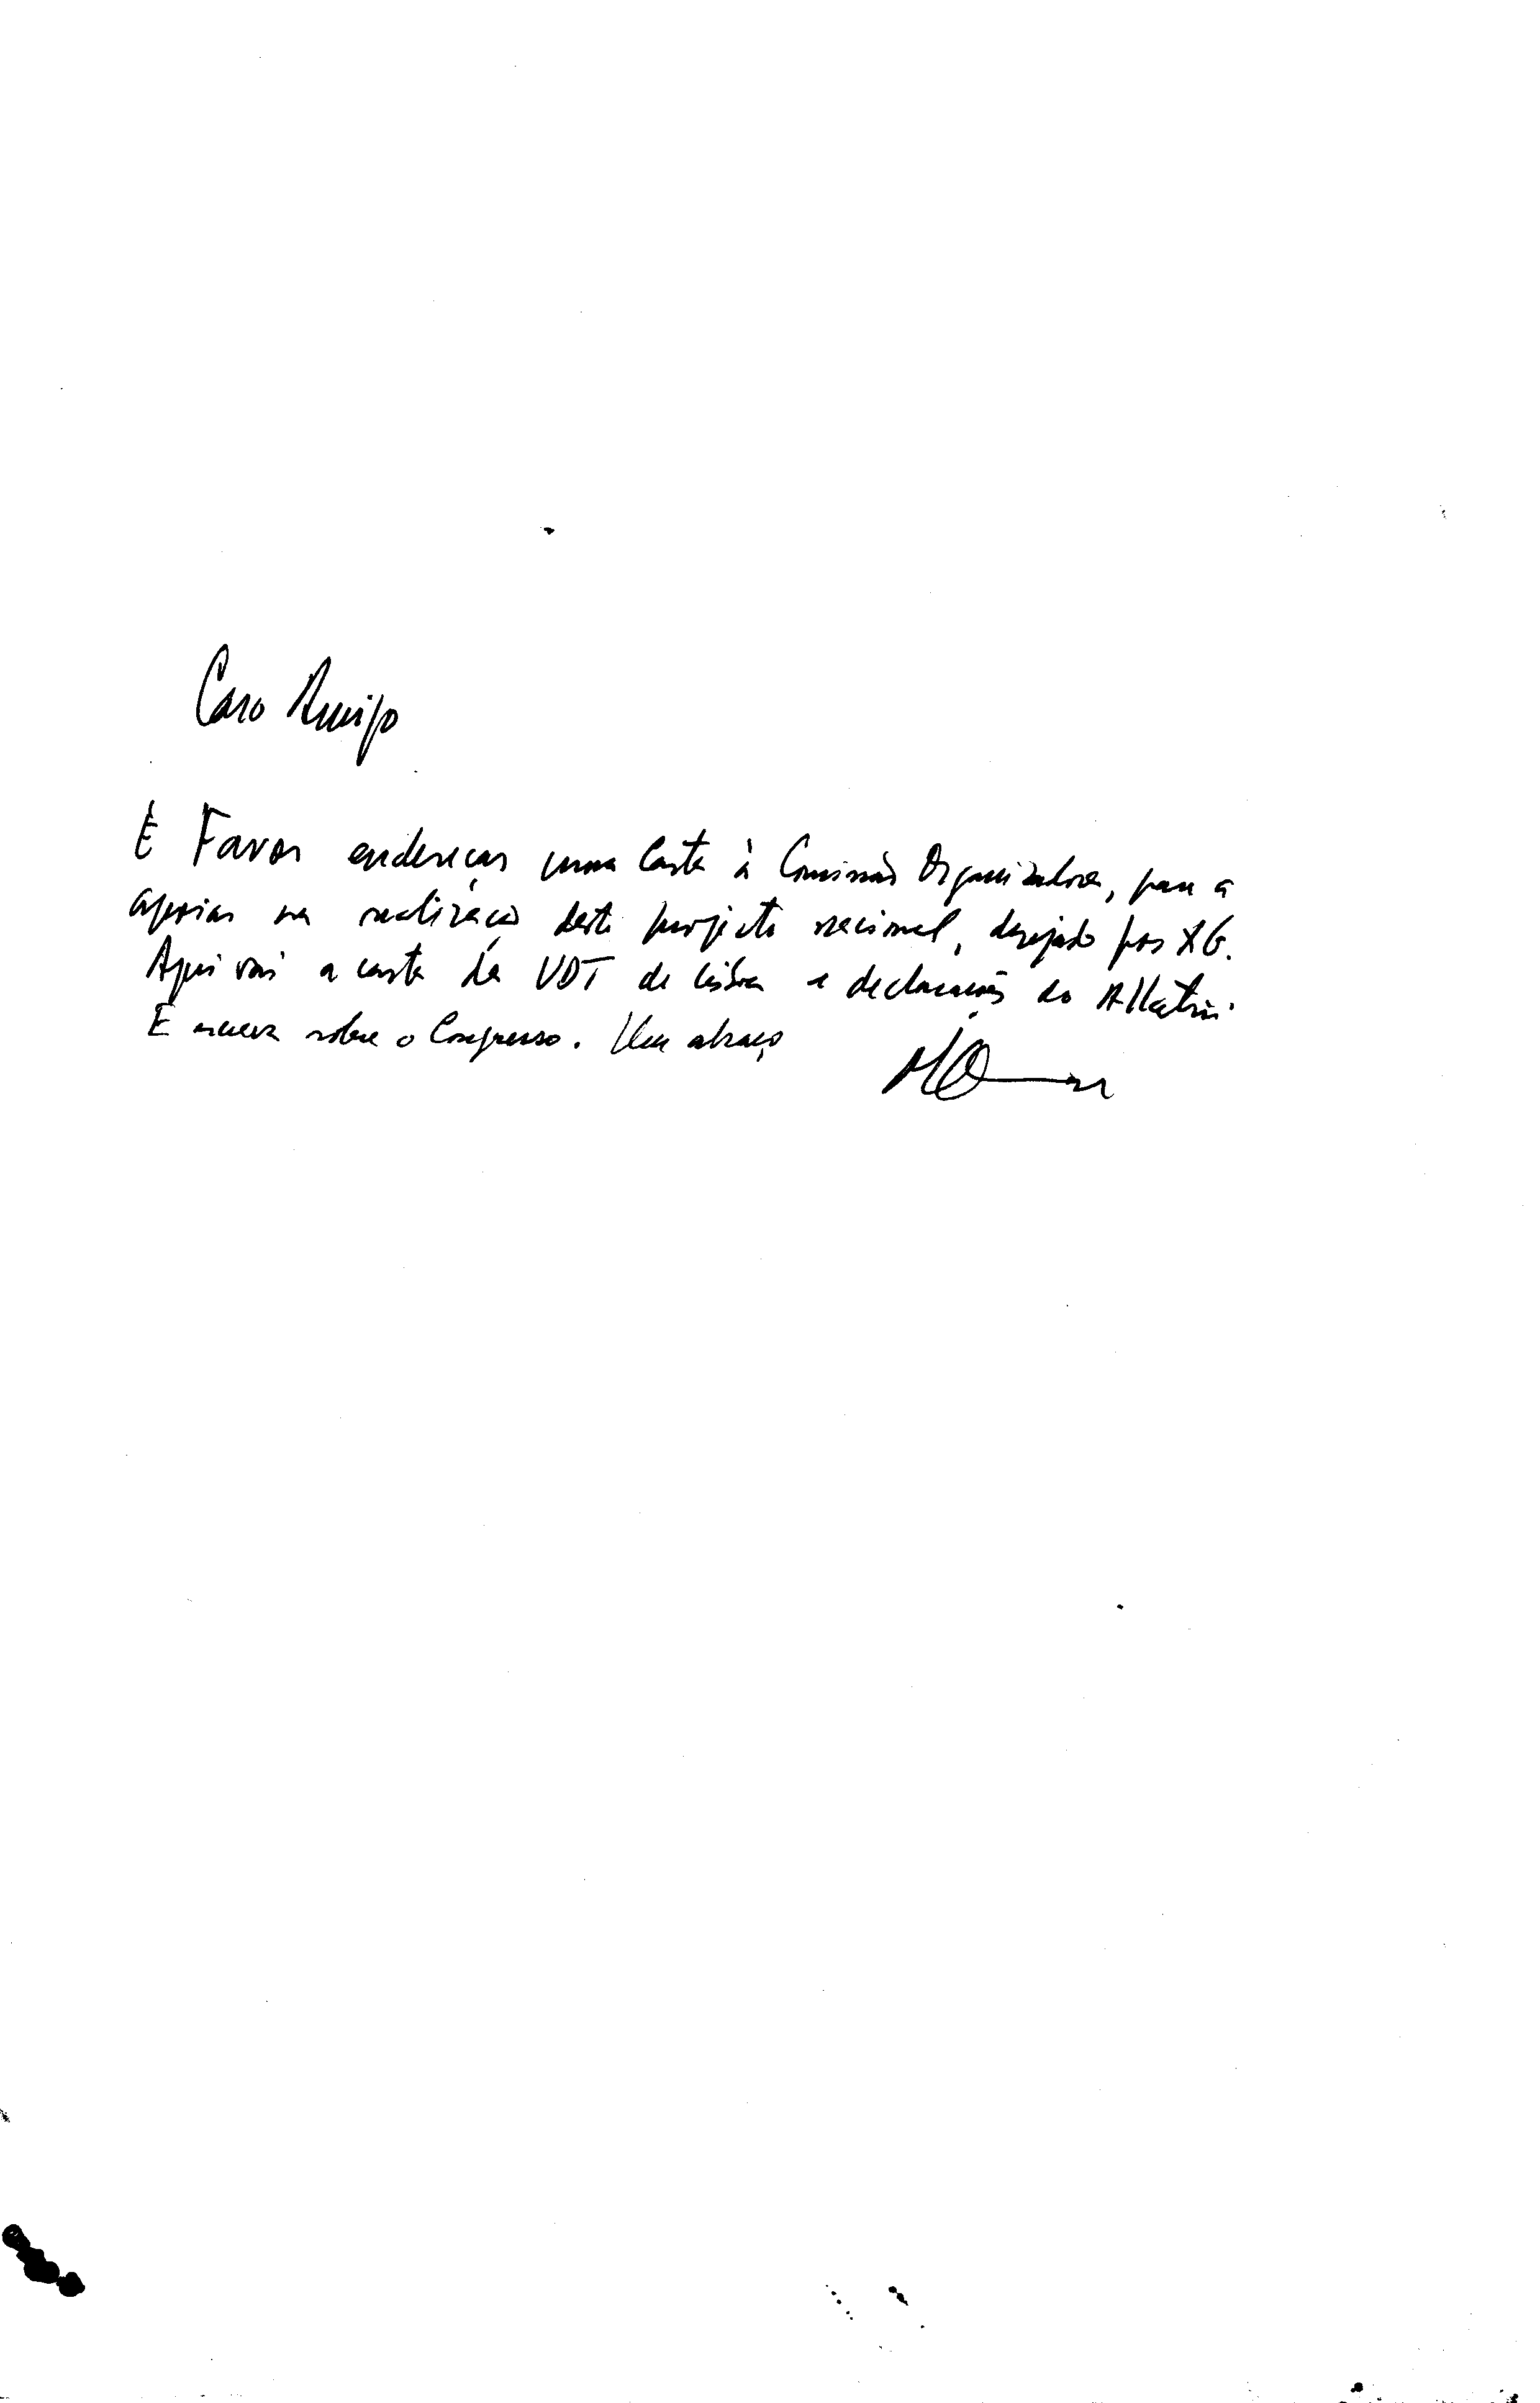 Caro Amigo
É Favor endereçar uma Carta à Comissão Organizadora, para a
apoiar na realização deste projecto nacional, desejado por XG.
Aqui vai a carta da UDT de Lisboa e declarações do Alkatiri.
E escreva sobre o Congresso. Um abraço